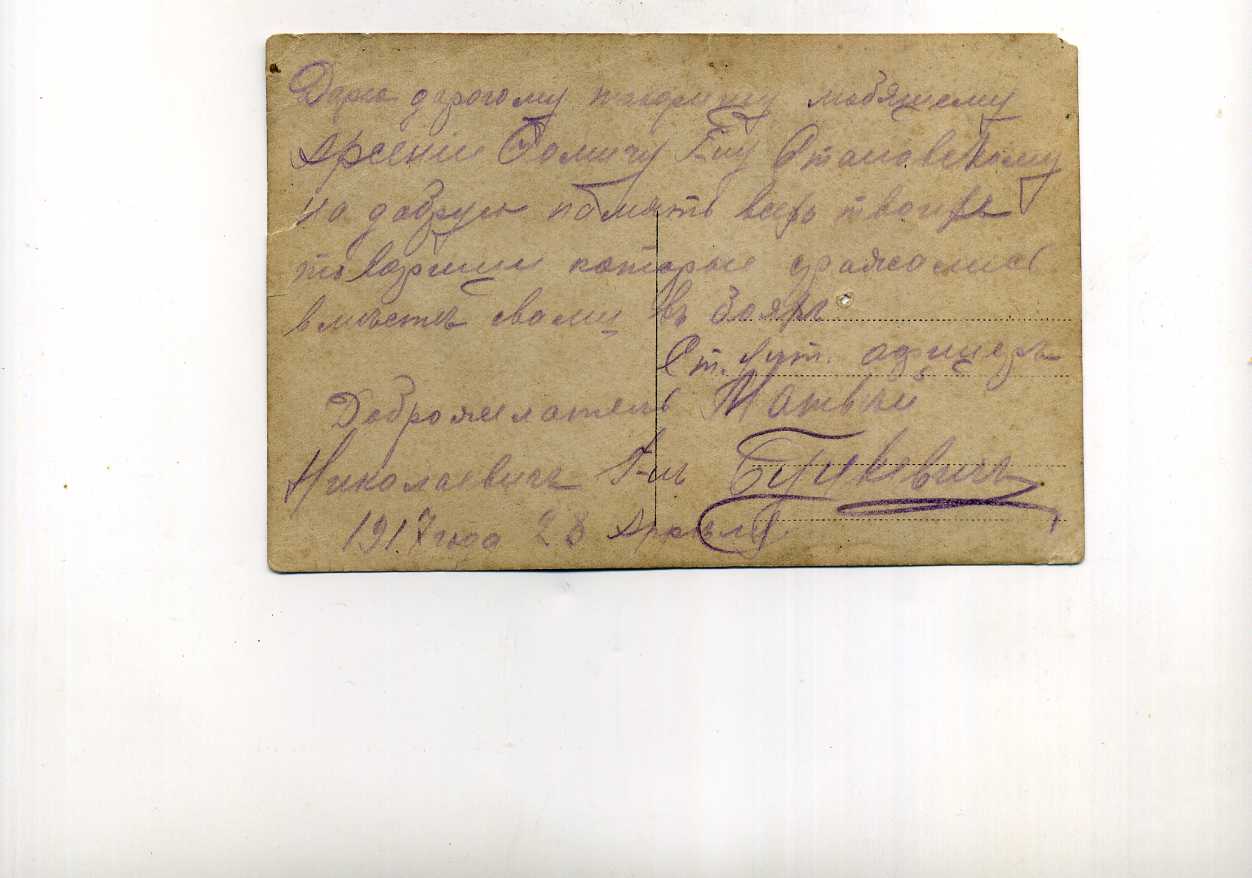 Дарю дорогому товарищу любящему
Арсенію Фомичу Г-ну Становскому
на добрую память всехъ твоихъ
товарищи которые сражались
вместе свами въ бояхъ
Ст. унт. офицеръ
Доброжелатель Матвей
Николаевичъ Г-нъ
1917 года 28 Апреля